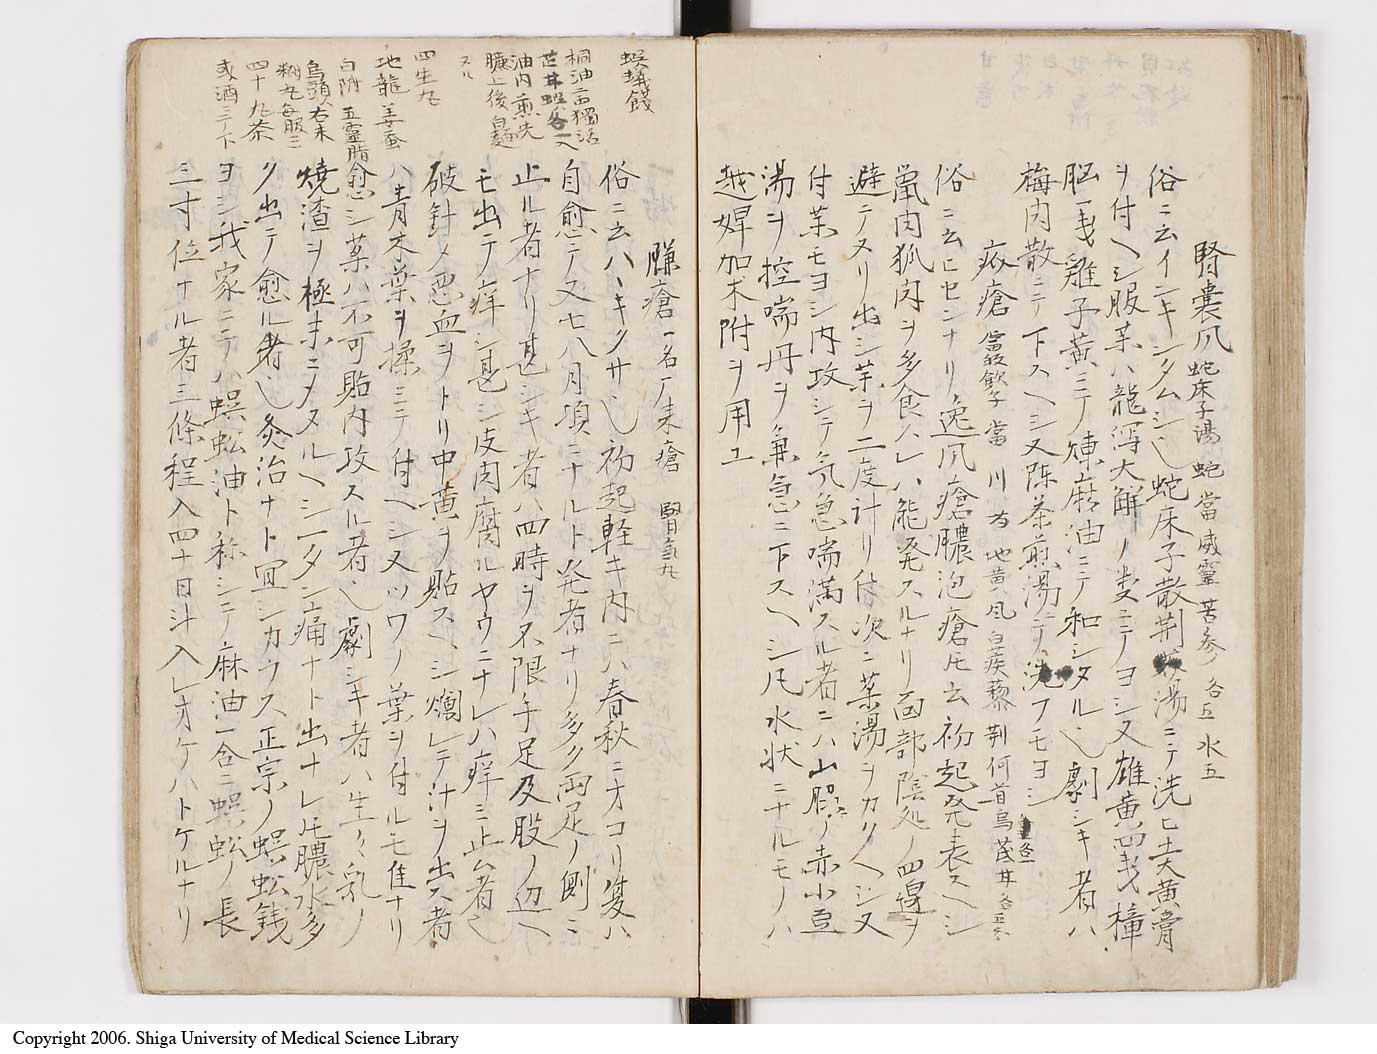 腎嚢風 蛇床子湯 蛇 當 威靈 苦参 各五 水五
俗ニ云インキンタムシ也蛇床子散荊湯ニテ洗ヒ土大黄膏
ヲ付ヘシ服薬ハ龍瀉大解ノ娄ニテヨシ又雄黄四戋樟
脳一戋雞子黄ニテ煉麻油ニテ和シタル也劇シキ者ハ
梅肉散ニテ下スヘシ又陈茶煎湯ニテ洗フモヨシ
疥瘡 當皈飲子 當 川 芍 地黄 風 白蒺藜 荊 何首烏 茋 甘
俗ニ云ヒセンナリ逸風瘡膿泡瘡圧云初起発表スヘシ
鼠肉狐肉ヲ多食ハレハ能発スルナリ面部陰処ノ四邉ヲ
避テヌリ出シ芋ヲ二度計リ付次ニ薬湯ヲカクヘシ又
付薬モヨシ内攻シテ気急喘満スル者ニハ山膠ノ赤小豆
湯ヲ控喘丹ヲ兼急ニ下スヘシ凡水状ニナルモノハ
越婢加术附ヲ用ユ
蜈蟻餞
桐油二百獨活
芷 甘 蜈 各一入
油内煎先
臁上後白麺
スル
四生丸
地龍 姜蚕
白附 五靈脂
烏頭右末
糊丸毎服三
四十丸茶
或酒ニテ下
臁瘡 一名厂耒瘡 腎氣丸
俗ニ云ハヽキクサ也初起軽キ内ニハ春秋ニオコリ夏ハ
自愈テ又七八月項ニナルト発者ナリ多ク両足ノ側ニ
止ル者ナリ甚シキ者ハ四時ヲ不限手足及股ノ辺ヘ
モ出テ痒シ甚シ皮肉腐ルヤウニナレハ痒ミ止ム者也
破針メ悪血ヲトリ中黄ヲ貼スヘシ爛レテ汁ヲ出ス者
ハ青木葉ヲ揉ミテ付ヘシ又ツワノ葉ヲ付ルモ隹ナリ
愈シ薬ハ不可貼内攻スル者也劇シキ者ハ生々乳ノ
焼渣ヲ極末ニヌルヘシ一タン痛ナト出ナレ圧膿水多
ク出テ愈ル者也灸治ナト冝シカラス正宗ノ蜈蚣銭
ヨシ我家ニテハ蜈蚣油ト称シテ麻油一合ニ蜈蚣ノ長
三寸位ナル者三條程入四十日汁入レオケハトケルナリ
Copyright 2006. Shiga University of Medical Science Library